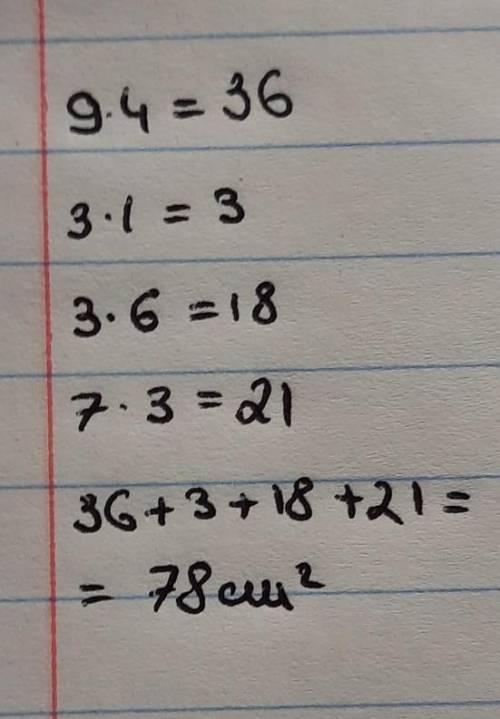 9·4 = 36
3·1 = 3
3·6 = 18
7·3 = 21
36+3+18+21=
= 78 см²